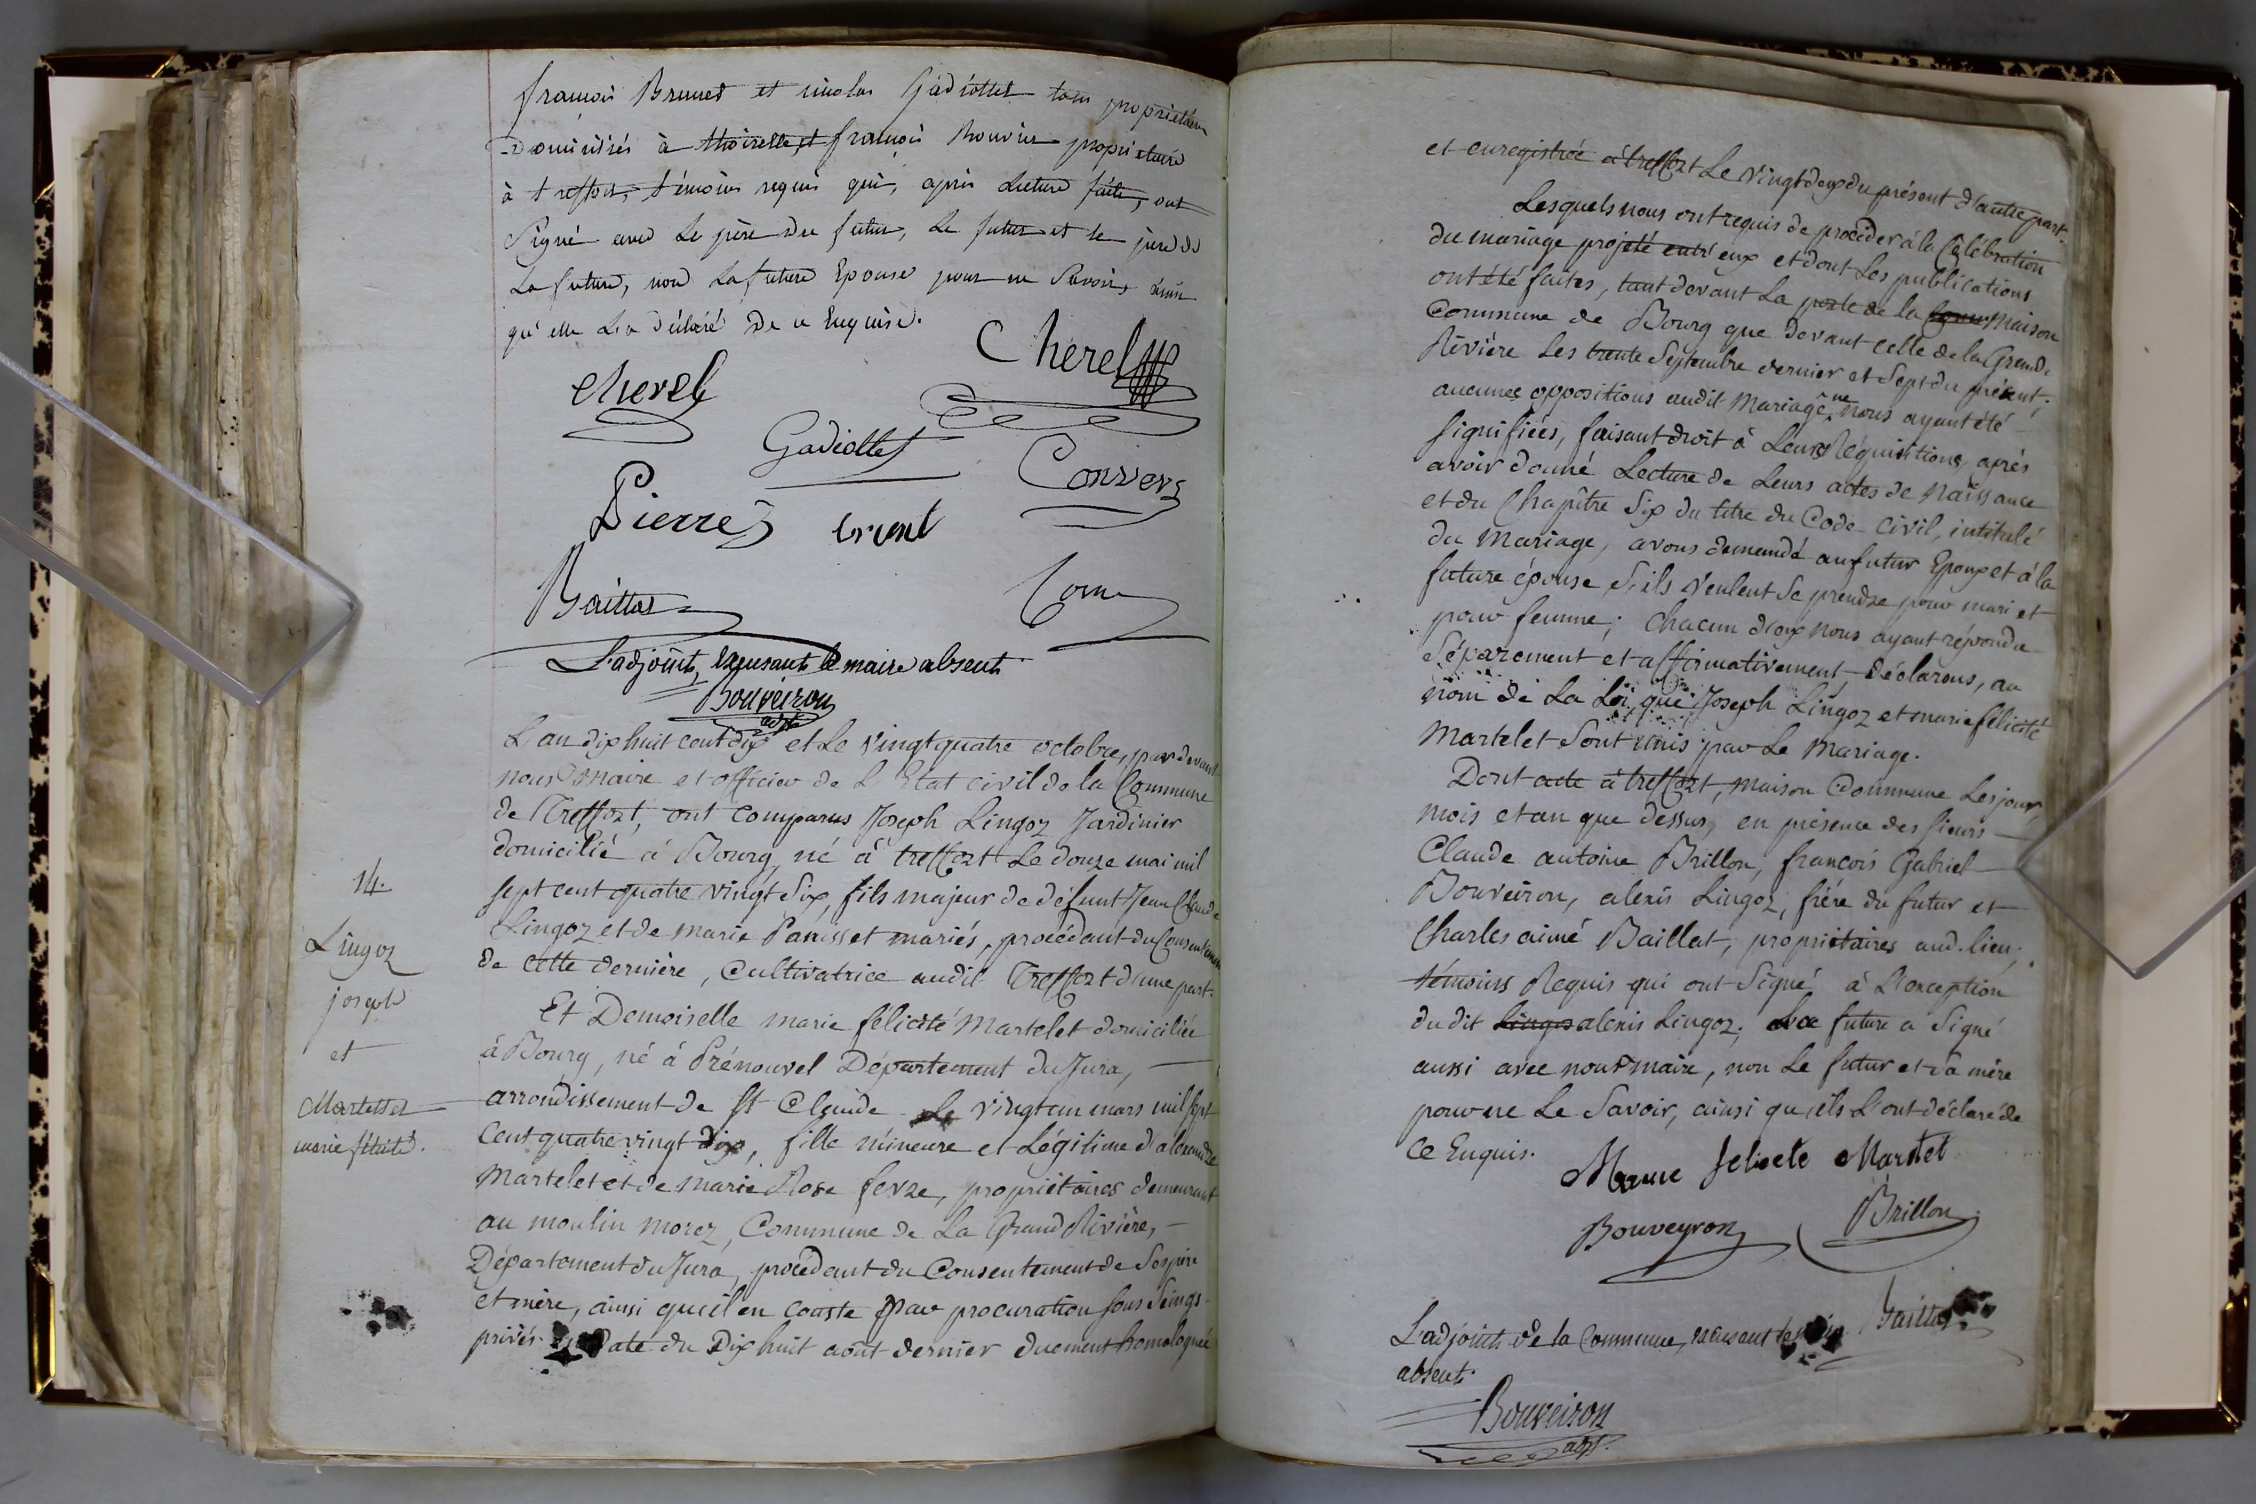 françois Brunet et nicolas Gadiollet tous proprietaires
domiciliés à thoirette, et françois Rouvier propriétaire
à treffort, témoins requis qui, après Lecture faite, ont
Signé avec Le père du futur, Le futur et le père de
La future, non La future Epouse pour ne Savoir, ainsi
qu'elle L'a déclaré de ce Enquise.
Cherel
Cherel
Gadiollet
Convers
Pierre
brunet
Baillat
L'adjoint, excusant le maire absent
Bouveiron
adjt
L'an dix huit cent dix et Le vingt quatre octobre, par devant
nous Maire et officier de L'Etat civil de la Commune
de Treffort, ont comparus Joseph Lingoz Jardinier
domicilié à Bourg, né à treffort Le douze mai mil
sept cent quatre vingt Six, fils majeur de défunt Jean Claude
Lingoz et de marie Panisset mariés, procédant du Consentement
de cette dernière, Cultivatrice audit Treffort d'une part.
Et Demoiselle marie félicité Martelet domiciliée
à Bourg, né à Prénouvel Département du Jura,
arrondissement de St Claude Le vingt un mars mil sept
Cent quatre vingt dix, fille mineure et Légitime d'alexandre
Martelet et de marie Rose ferre, propriétaires demeurant
au moulin morez, Commune de La Grand Rivière,
Département du Jura, procédant du Consentement de Ses père
et mère, ainsi qu'il en conste Par procuration sous Seings
privés en Date du Dix huit août dernier duement homologuée
14.
Lingoz
joseph
et
Martelet
marie félicité.
et enregistrée à treffort Le vingt deux du présent d'autre part.
Lesquels nous ont requis de procéder à la Célébration
du mariage projeté entr'eux et dont Les publications
ont été faites, tant devant La porte de la Comu Maison
Commune de Bourg que devant celle de la Grande
Rivière Les trente Septembre dernier et Sept du présent;
aucunes oppositions audit Mariage ne nous ayant été
signifiées, faisant droit à Leurs Réquisitions, après
avoir donné Lecture de Leurs actes de Naissance
et du Chapître Six du titre du Code civil, intitulé
du Mariage, avons demandé au futur Epoux et à la
future épouse S'ils veulent Se prendre pour mari et
pour femme; Chacun d'eux nous ayant répondu
Séparement et affirmativement, déclarons, au
nom de La Loi, que Joseph Lingoz et marie félicité
Martelet Sont unis par Le Mariage.
Dont acte à treffort, Maison Commune Les jour,
mois et an que dessus, en présence des sieurs
Claude antoine Brillon, françois Gabriel
Bouveiron, alexis Lingoz, frére du futur et
Charles aimé Baillat, propriétaires aud. lieu,
témoins Requis qui ont Signé à L'exception
dudit Lingoz alexis Lingoz; La future a Signé
aussi avec nous Maire, non Le futur et Sa mère
pour ne Le Savoir, ainsi qu'ils L'ont déclaré de
Ce Enquis.
Marie felicité Martelet
Bouveyron
Brillon
Baillat
L'adjoint de la Commune, excusant le maire
absent.
Bouveiron
adjt.